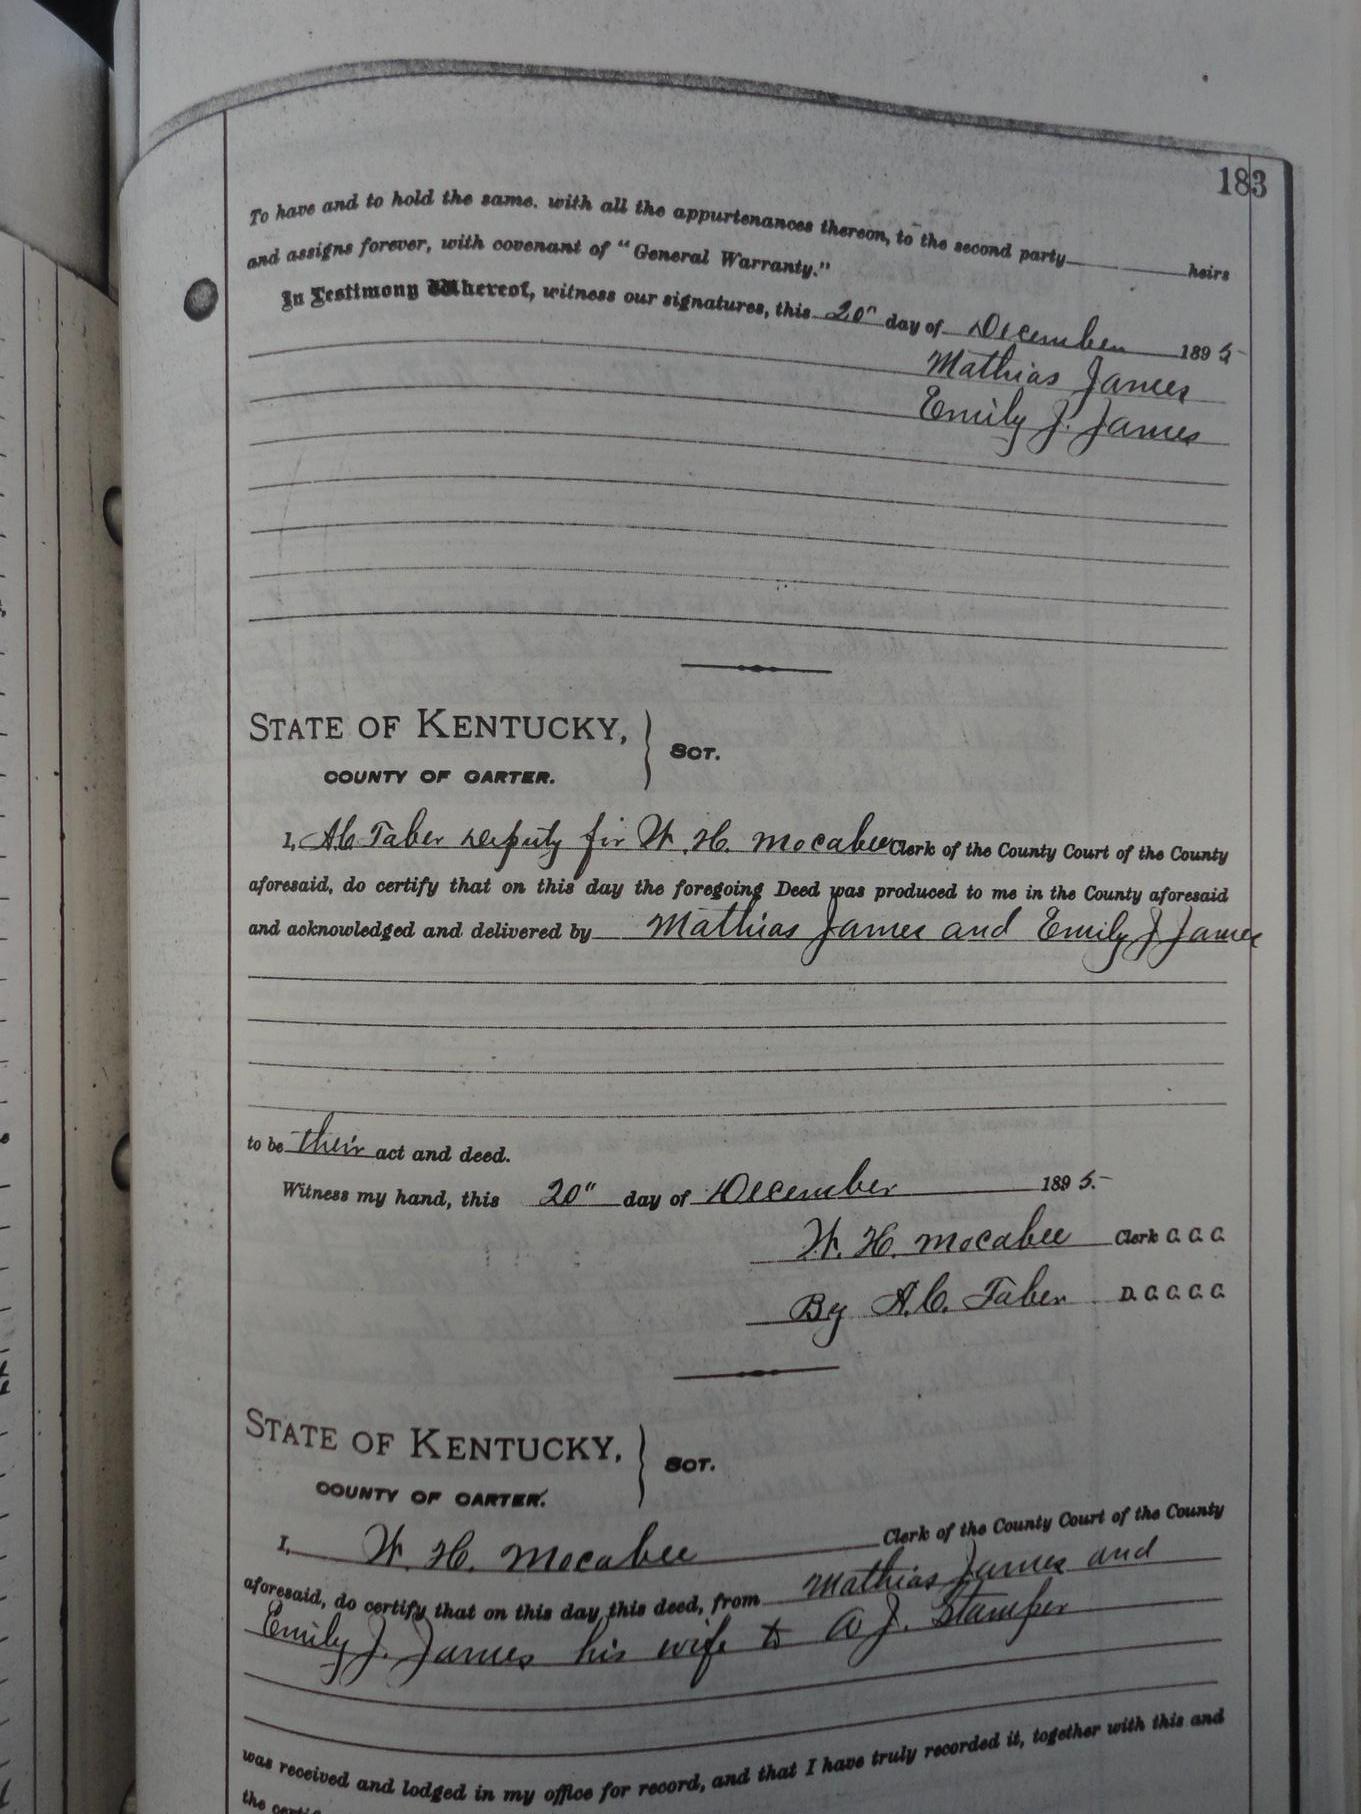 183
To have and to hold the same. with all the appurtenances thereon, to the second party heirs
and assigns forever, with covenant of "General Warranty."
In Testimony Whereof, witness our signatures, this 20" day of December 1895-
Mathias James
Emily J. James
STATE OF KENTUCKY,
COUNTY OF CARTER. } SCT.
I, A C Taber Deputy for W. H. Mocabee Clerk of the County Court of the County
aforesaid, do certify that on this day the foregoing Deed was produced to me in the County aforesaid
and acknowledged and delivered by Mathias James and Emily J James
to be their act and deed.
Witness my hand, this 20" day of December 1895.-
W. H. Mocabee Clerk C. C. C.
By A. C. Taber D. C. C. C. C.
STATE OF KENTUCKY,
COUNTY OF CARTER. } SCT.
I, W. H. Mocabee Clerk of the County Court of the County
aforesaid, do certify that on this day this deed, from Mathias James and
Emily J. James his wife to A J. Stamper
was received and lodged in my office for record, and that I have truly recorded it, together with this and
the